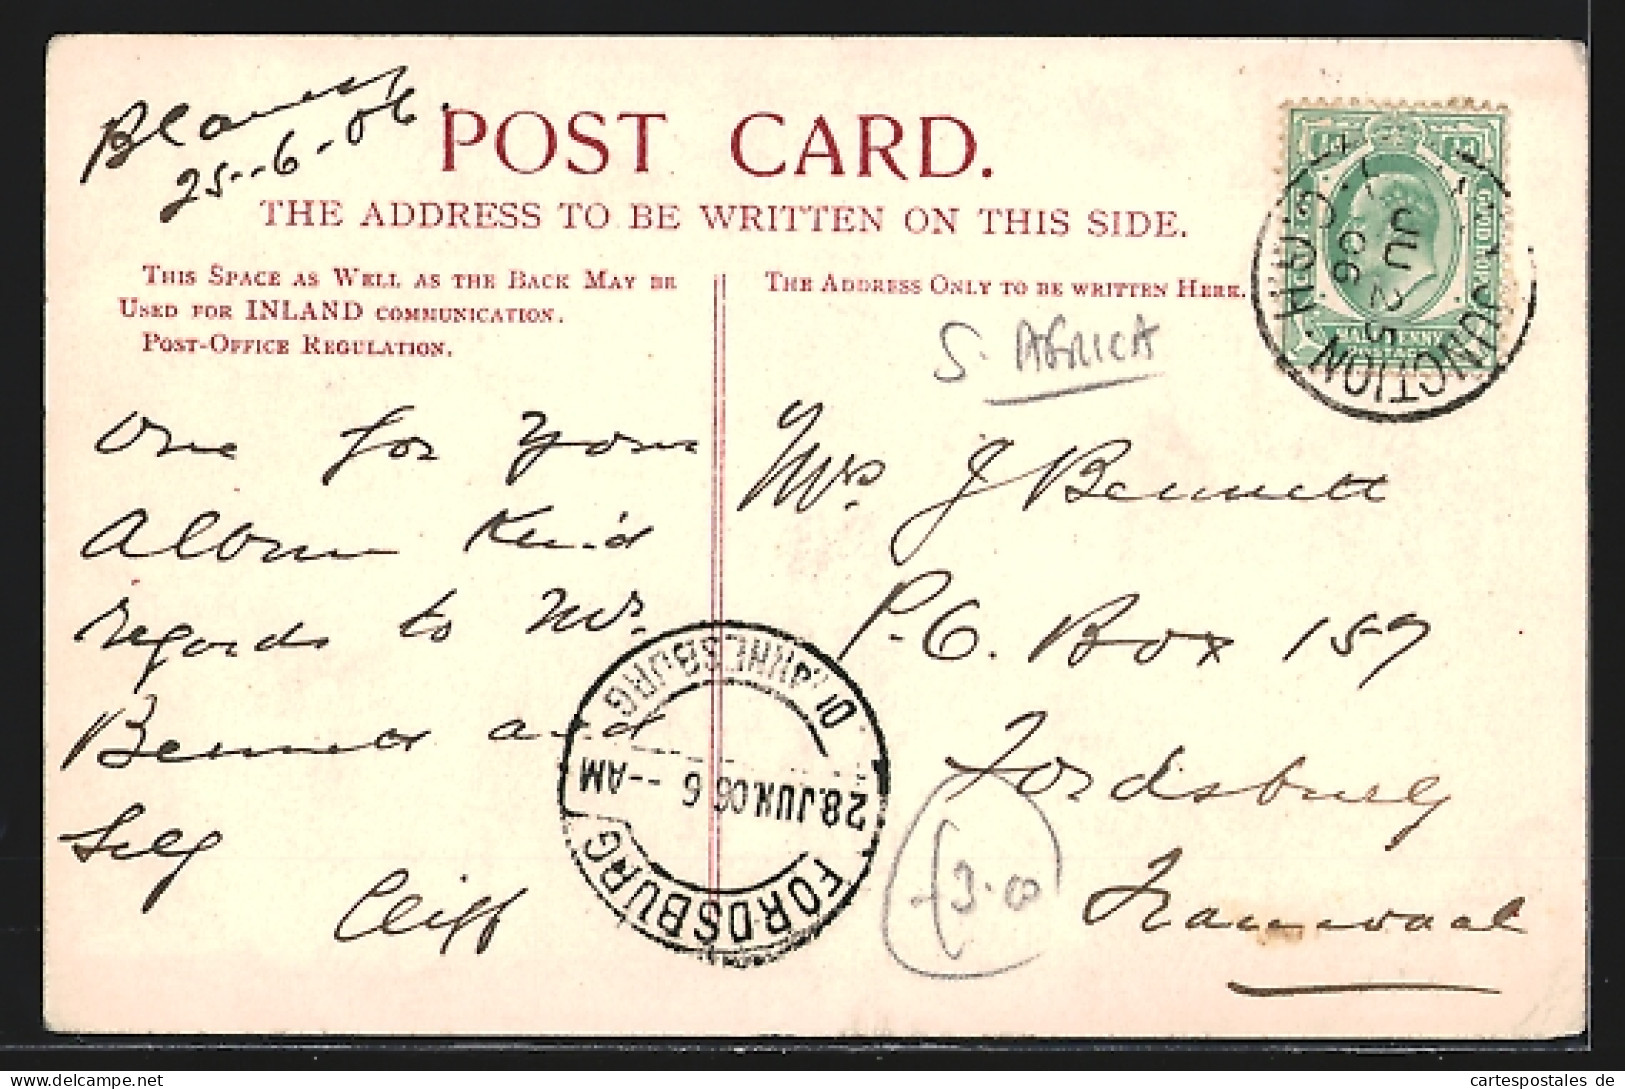 25-6-06.
POST CARD.
THE ADDRESS TO BE WRITTEN ON THIS SIDE.
THIS SPACE AS WELL AS THE BACK MAY BE
USED FOR INLAND COMMUNICATION.
POST-OFFICE REGULATION.
THE ADDRESS ONLY TO BE WRITTEN HERE.
S. AFRICA
One for your
Album Kind
regards to Mr.
Bennett and
Self
Cliff
Mrs J Bennett
P.O. Box 157
Fordsburg
Transvaal
3.00
HALFPENNY
JUNCTION
JU 25
06
28.JUN.06 6 --AM
FORDSBURG
cartespostales de